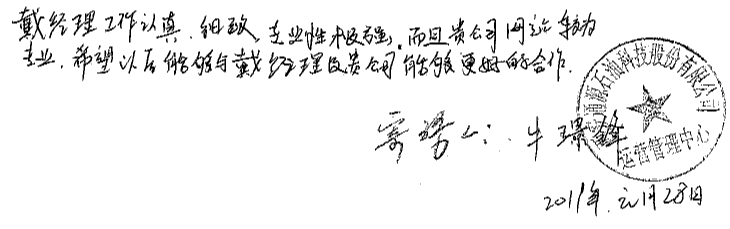 戴经理工作认真、细致、专业性极强，而且贵公司网站较为
专业，希望以后能够与戴经理及贵公司能够更好的合作．
牛璟锋
石油科技股份有限公司
运营管理中心
2011年 元月28日